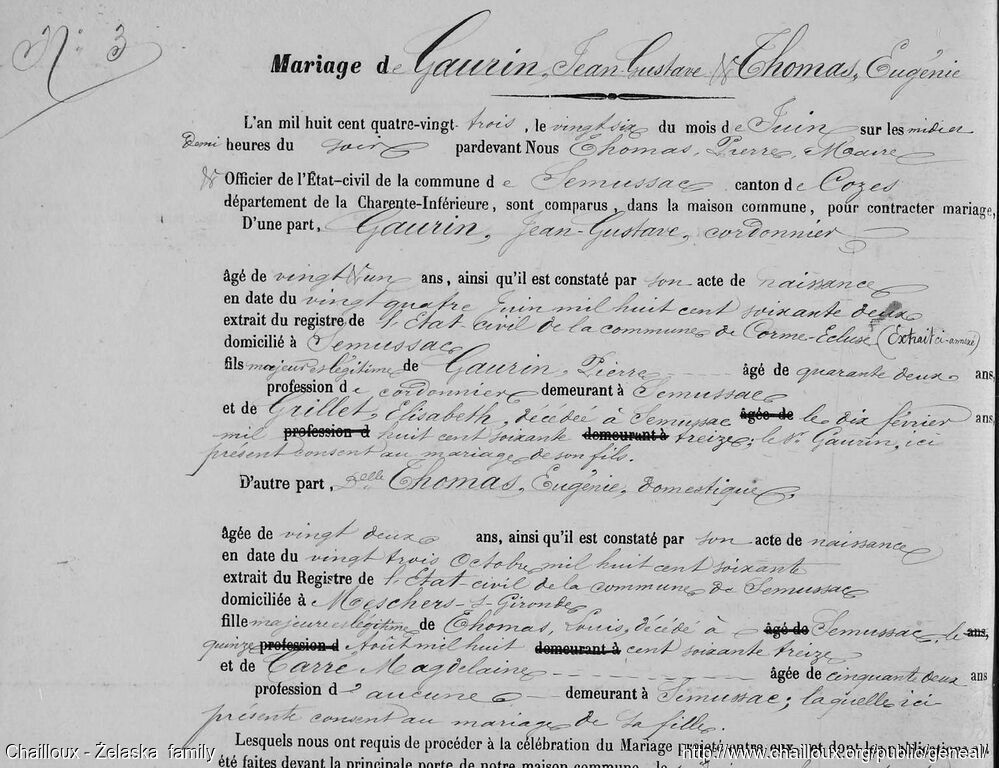 N° 3
Mariage de Gaurin, Jean Gustave & Thomas, Eugénie
L'an mil huit cent quatre-vingt-trois, le vingt six du mois de Juin sur les midi et
Demi heures du soir pardevant Nous Thomas, Pierre, Maire
& Officier de l'État-civil de la commune de Semussac canton de Cozes
département de la Charente-Inférieure, sont comparus, dans la maison commune, pour contracter mariage,
D'une part, Gaurin, Jean-Gustave, cordonnier
âgé de vingt & un ans, ainsi qu'il est constaté par son acte de naissance
en date du vingt quatre Juin mil huit cent soixante deux
extrait du registre de l'Etat civil de la commune de Corme-Ecluse (Extrait ci-annexé)
domicilié à Semussac
fils majeur et légitime de Gaurin, Pierre âgé de quarante deux ans,
profession de cordonnier demeurant à Semussac
et de Grillet, Elisabeth, décédée à Semussac âgée de le dix février ans,
mil profession d huit cent soixante demeurant à treize; le Sr Gaurin, ici
présent consent au mariage de son fils.
D'autre part, Delle Thomas, Eugénie, domestique,
âgée de vingt deux ans, ainsi qu'il est constaté par son acte de naissance
en date du vingt trois Octobre mil huit cent soixante
extrait du Registre de l'Etat-civil de la commune de Semussac
domiciliée à Meschers-s-Gironde
fille majeure et légitime de Thomas, Louis, décédé à âgé de Semussac, le ans,
quinze profession d Août mil huit demeurant à cent soixante treize
et de Carré Magdelaine âgée de cinquante deux ans
profession d'aucune demeurant à Semussac; laquelle ici
présente consent au mariage de sa fille.
Lesquels nous ont requis de procéder à la célébration du Mariage projeté entre eux, et dont les publications ont
été faites devant la principale porte de notre maison commune, le
Chailloux - Żelaska family
http://www.chailloux.org/public/geneal/